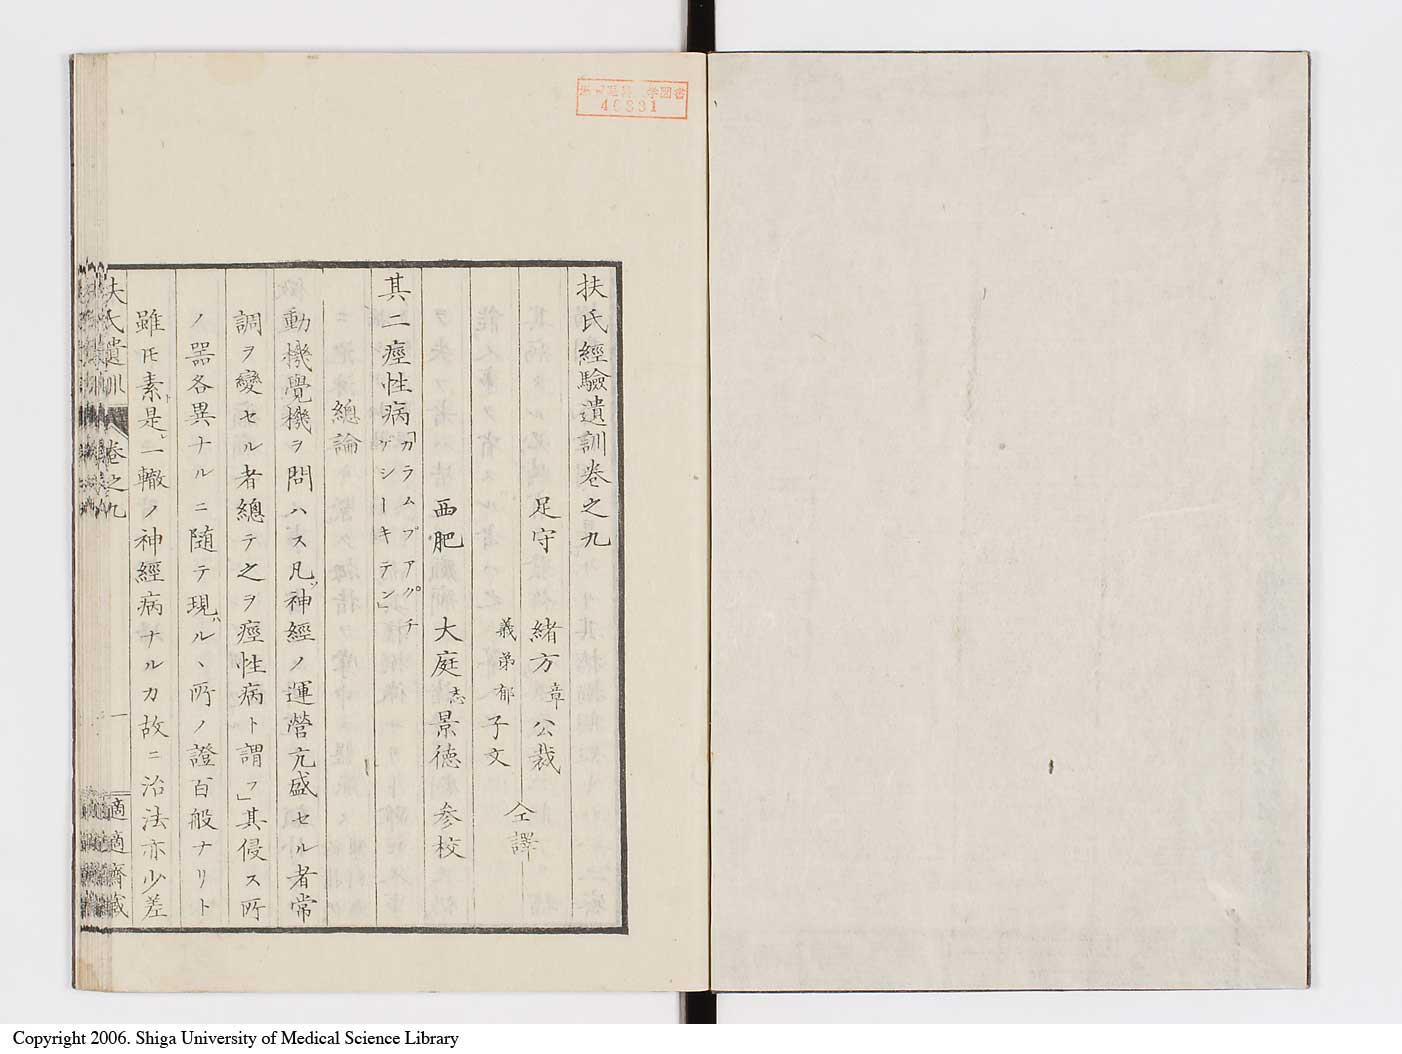 扶氏經驗遺訓卷之九
足守 緒方章公裁
義弟郁子文 仝譯
西肥 大庭志景德 參校
其二痙性病「カラムプアクチゲシーキテン」
總論
動機覺機ヲ問ハス凡ソ神經ノ運營亢盛セル者常
調ヲ變セル者總テ之ヲ痙性病ト謂フ」其侵ス所
ノ器各異ナルニ随テ現ハルヽ所ノ證百般ナリト
雖𪜈素ト是レ一轍ノ神經病ナルカ故ニ治法亦少差
扶氏遺訓 卷之九 一 適適齊藏
46331
Copyright 2006. Shiga University of Medical Science Library